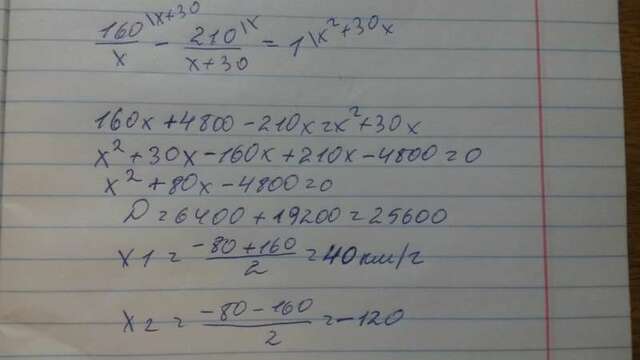 160\x+30/x - 210\x/x+30 = 1\x²+30x
160x+4800-210x=x²+30x
x²+30x-160x+210x-4800=0
x²+80x-4800=0
D=6400+19200=25600
x1 = -80+160/2 = 40км/г
x2 = -80-160/2 = -120